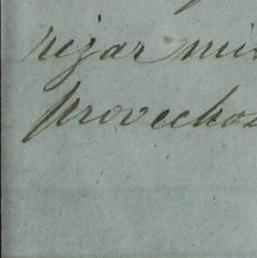 rijar mi
provechos